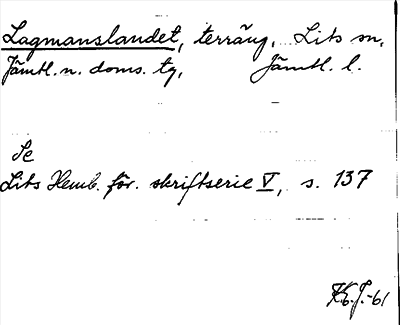 Lagmanslandet, terräng, Lits sn,
Jämtl. n. doms. tg, Jämtl. l.
Se
Lits Hemb. för. skriftserie V, s. 137